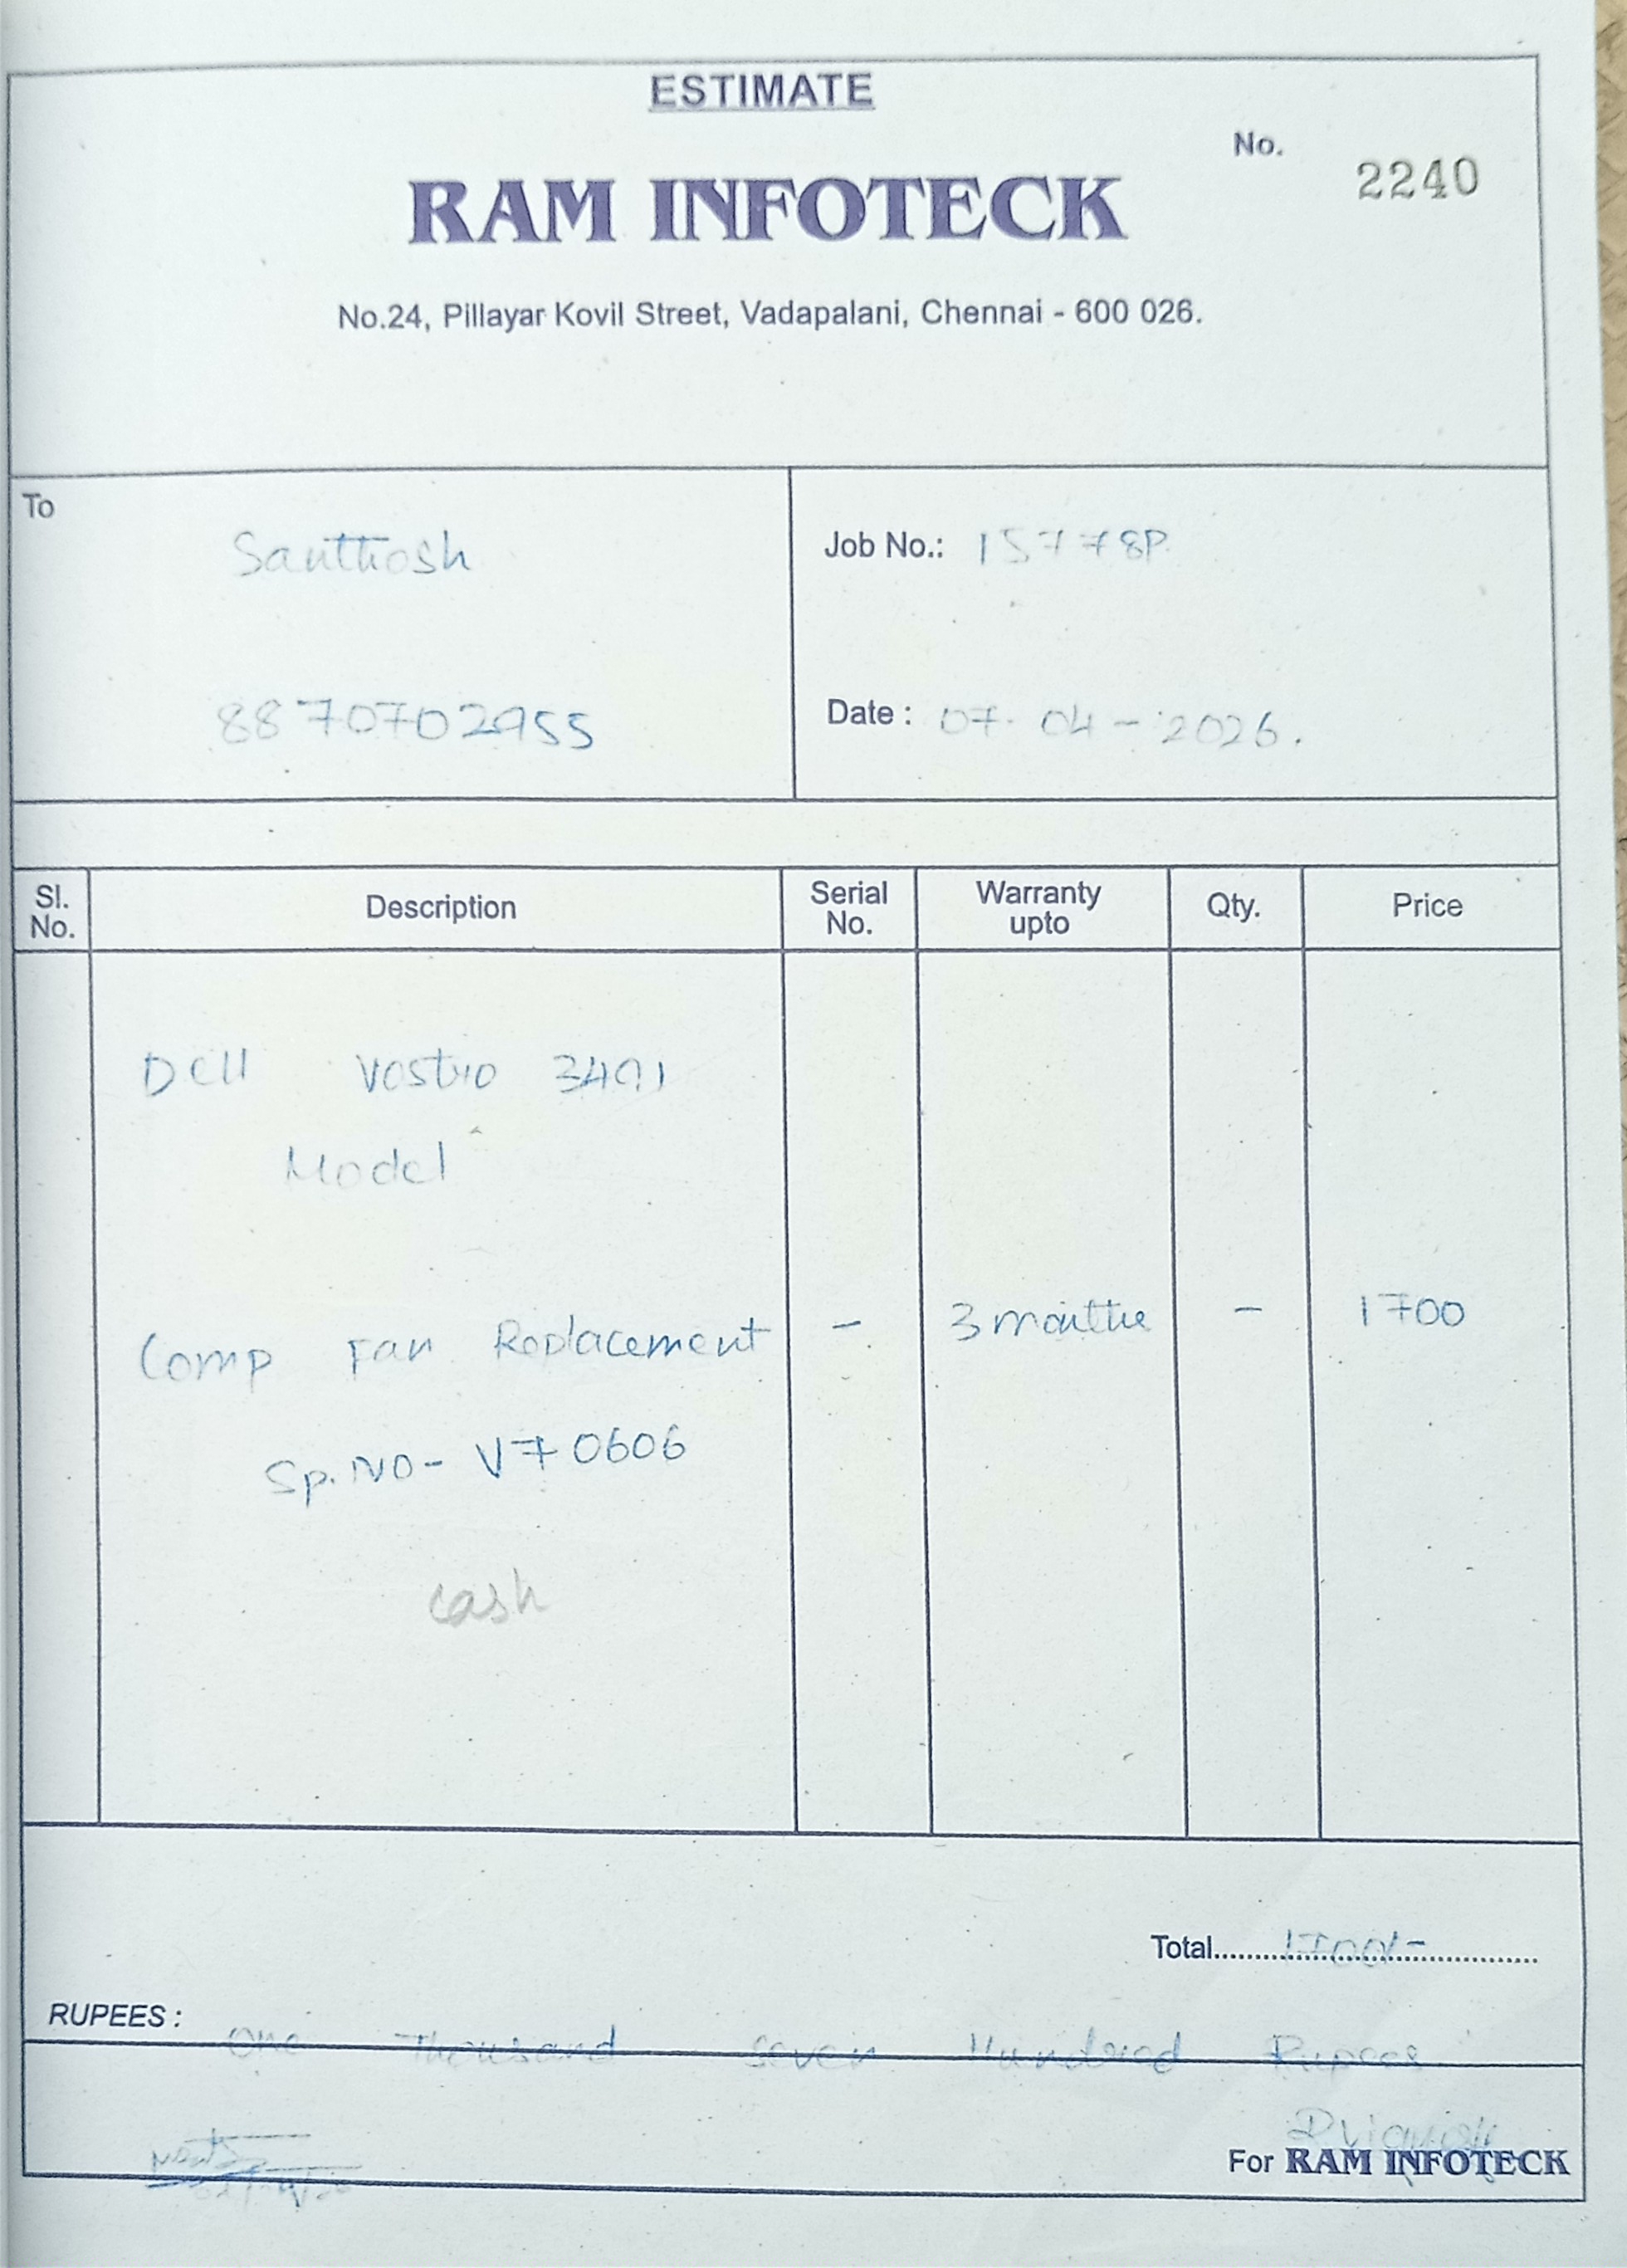 ESTIMATE
No. 2240
RAM INFOTECK
No.24, Pillayar Kovil Street, Vadapalani, Chennai - 600 026.
To
Santhosh
8870702955
Job No.: 15778P
Date : 07-04-2026.
Sl. No. Description Serial No. Warranty upto Qty. Price
Dell Vostro 3491
Model
Comp Fan Replacement - 3 months - 1700
Sp. No - V70606
cash
Total 1700/-
RUPEES : One Thousand Seven Hundred Rupees
For RAM INFOTECK